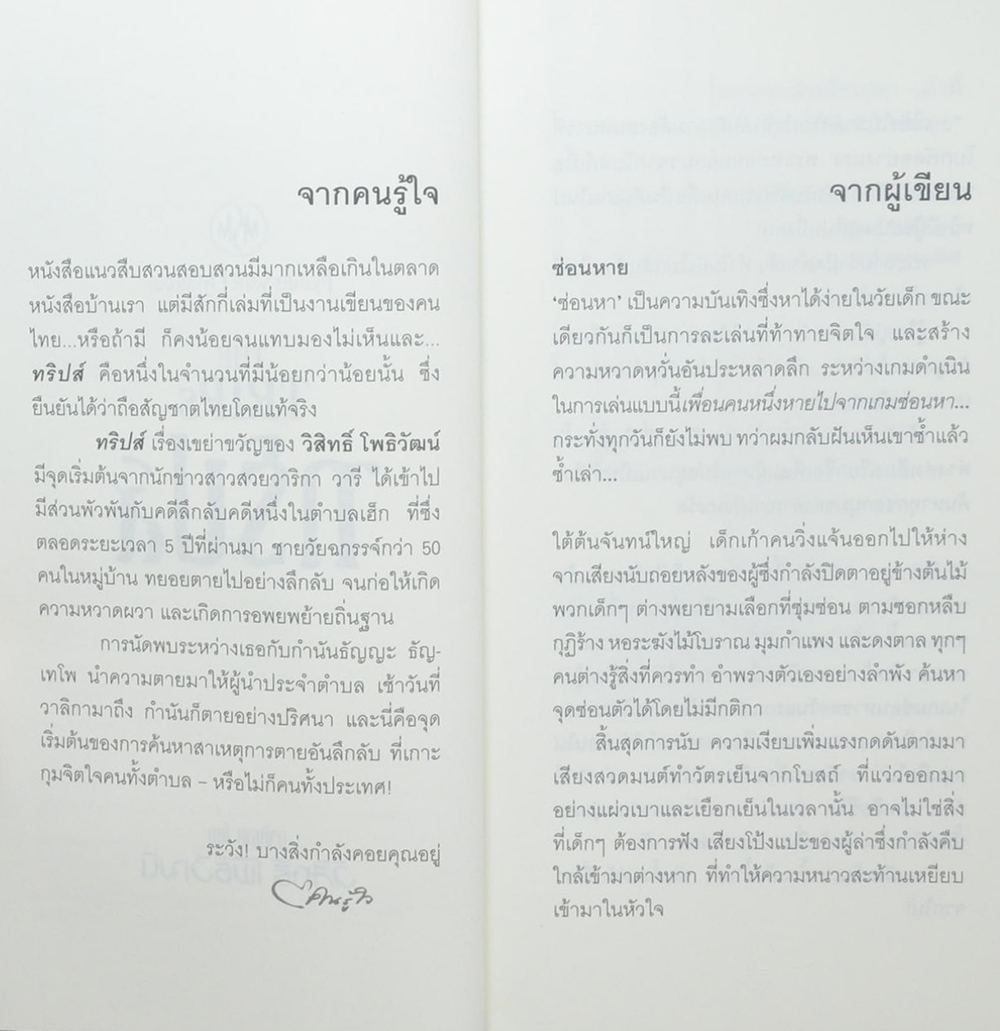 จากคนรู้ใจ
หนังสือแนวสืบสวนสอบสวนมีมากเหลือเกินในตลาด
หนังสือบ้านเรา แต่มีสักกี่เล่มที่เป็นงานเขียนของคน
ไทย...หรือถ้ามี ก็คงน้อยจนแทบมองไม่เห็นและ...
ทริปส์ คือหนึ่งในจำนวนที่มีน้อยกว่าน้อยนั้น ซึ่ง
ยืนยันได้ว่าถือสัญชาตไทยโดยแท้จริง
ทริปส์ เรื่องเขย่าขวัญของ วิสิทธิ์ โพธิวัฒน์
มีจุดเริ่มต้นจากนักข่าวสาวสวยวาริกา วารี ได้เข้าไป
มีส่วนพัวพันกับคดีลึกลับคดีหนึ่งในตำบลเฮ็ก ที่ซึ่ง
ตลอดระยะเวลา 5 ปีที่ผ่านมา ชายวัยฉกรรจ์กว่า 50
คนในหมู่บ้าน ทยอยตายไปอย่างลึกลับ จนก่อให้เกิด
ความหวาดผวา และเกิดการอพยพย้ายถิ่นฐาน
การนัดพบระหว่างเธอกับกำนันธัญญะ ธัญ-
เทโพ นำความตายมาให้ผู้นำประจำตำบล เช้าวันที่
วาลิกามาถึง กำนันก็ตายอย่างปริศนา และนี่คือจุด
เริ่มต้นของการค้นหาสาเหตุการตายอันลึกลับ ที่เกาะ
กุมจิตใจคนทั้งตำบล – หรือไม่ก็คนทั้งประเทศ!
ระวัง! บางสิ่งกำลังคอยคุณอยู่
คนรู้ใจ
จากผู้เขียน
ซ่อนหาย
‘ซ่อนหา’ เป็นความบันเทิงซึ่งหาได้ง่ายในวัยเด็ก ขณะ
เดียวกันก็เป็นการละเล่นที่ท้าทายจิตใจ และสร้าง
ความหวาดหวั่นอันประหลาดลึก ระหว่างเกมดำเนิน
ในการเล่นแบบนี้เพื่อนคนหนึ่งหายไปจากเกมซ่อนหา...
กระทั่งทุกวันก็ยังไม่พบ ทว่าผมกลับฝันเห็นเขาซ้ำแล้ว
ซ้ำเล่า...
ใต้ต้นจันทน์ใหญ่ เด็กเก้าคนวิ่งแจ้นออกไปให้ห่าง
จากเสียงนับถอยหลังของผู้ซึ่งกำลังปิดตาอยู่ข้างต้นไม้
พวกเด็กๆ ต่างพยายามเลือกที่ซุ่มซ่อน ตามซอกหลืบ
กุฏิร้าง หอระฆังไม้โบราณ มุมกำแพง และดงตาล ทุกๆ
คนต่างรู้สิ่งที่ควรทำ อำพรางตัวเองอย่างลำพัง ค้นหา
จุดซ่อนตัวได้โดยไม่มีกติกา
สิ้นสุดการนับ ความเงียบเพิ่มแรงกดดันตามมา
เสียงสวดมนต์ทำวัตรเย็นจากโบสถ์ ที่แว่วออกมา
อย่างแผ่วเบาและเยือกเย็นในเวลานั้น อาจไม่ใช่สิ่ง
ที่เด็กๆ ต้องการฟัง เสียงโป้งแปะของผู้ล่าซึ่งกำลังคืบ
ใกล้เข้ามาต่างหาก ที่ทำให้ความหนาวสะท้านเหยียบ
เข้ามาในหัวใจ